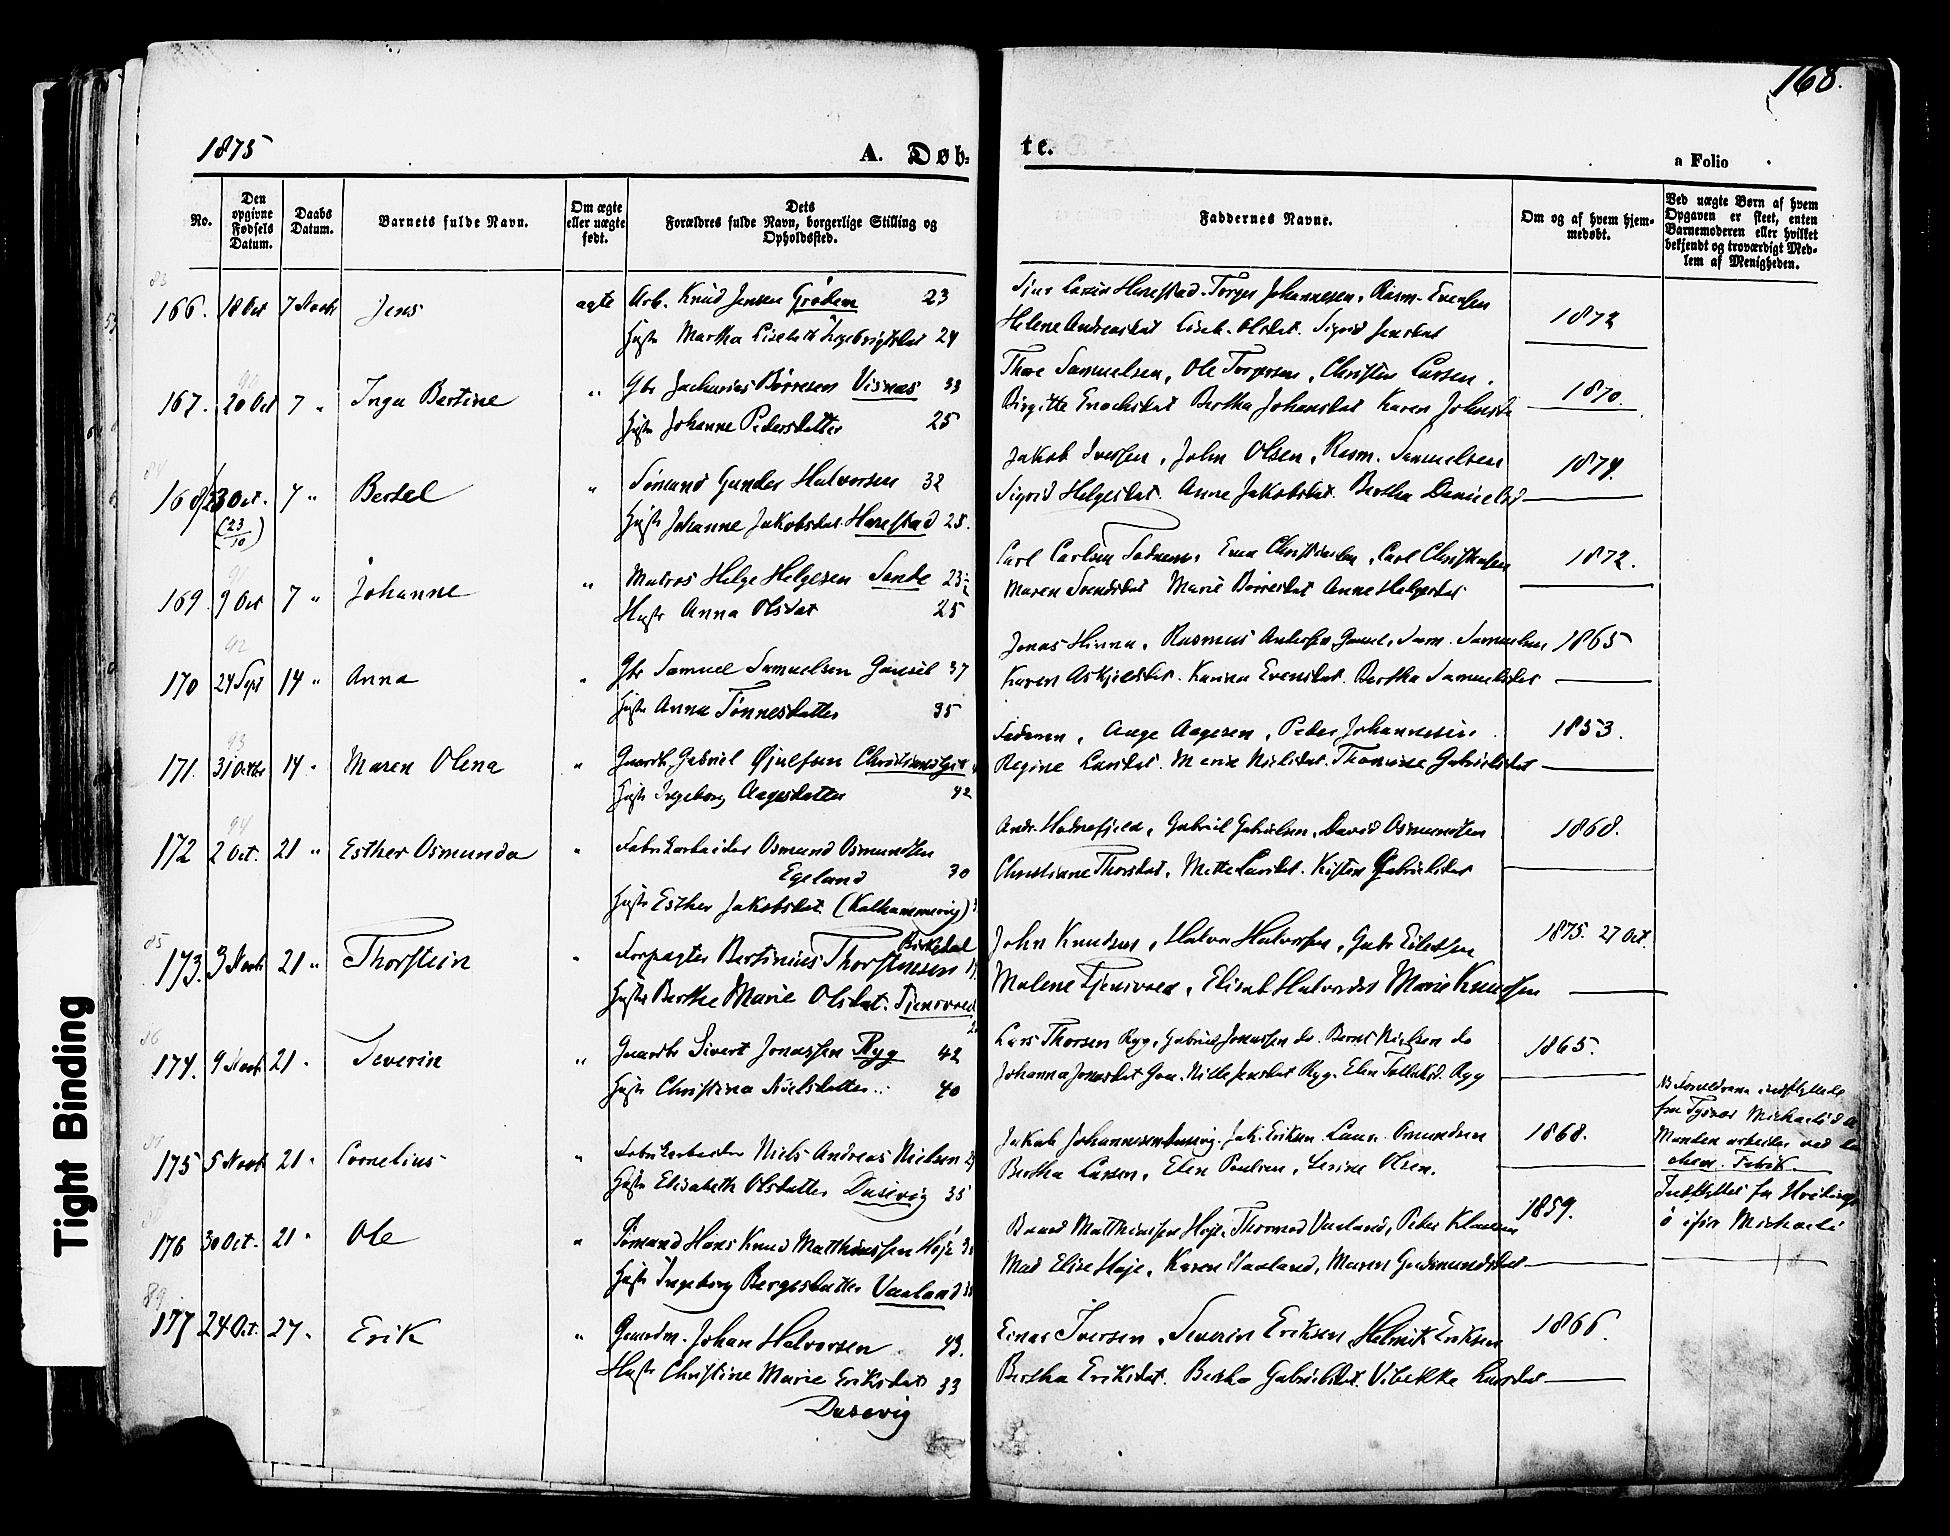 168.
1875
A. Døb-
te.
a Folio
No.
Den opgivne Fødsels Datum.
Daabs Datum.
Barnets fulde Navn.
Om ægte eller uægte født.
Dets Forældres fulde Navn, borgerlige Stilling og Opholdssted.
Faddernes Navne.
Om og af hvem hjemmedøbt.
Ved uægte Børn af hvem Opgaven er skeet, enten Barnemoderen eller hvilket bekjendt og troværdigt Medlem af Menigheden.
166. 18 Oct 7 Novb Jens ægte Arb. Knud Jensen Grødem 23
Hustr Martha Lisebeth Ingebrigtsdat 24
Torger Johannesen, Rasm. Evensen
Helene Andreasdat Liseb. Olsdat. Sigrid Jensdat
1872
167. 20 Oct 7 " Inga Bertine " Gbr Zacharias Børresen Visnæs 33
Hustr Johanne Pedersdatter 25
Thore Samuelsen, Ole Torgersen, Christen Larsen.
Birgitte Enochsdat Bertha Johansdat Karen Johnsd
1870.
168 23 Oct. 7 " Bertel " Sømand Gunder Halvorsen 32
(23/10)
Hustr Johanne Jakobsdat. Harestad 25.
Jakob Iversen, John Olsen, Rasm. Samuelsen
Sigrid Helgesdat. Anne Jakobsdat. Bertha Danielsd
1874.
169. 9 Oct 7 " Johanne " Matros Helge Helgesen Sande 23
Hustr Anna Olsdat 25
Carl Carlsen Carl Christensen
Maren Svendsdat Marie Børresdat Anne Helgesdat
1872.
170 24 Sept 14 " Anna " Gbr Samuel Samuelsen Gausel 37
Hustr Anna Tønnesdatter 35
Jonas Hinna, Rasmus Andersen Gausel, Sam. Samuelsen
Karen Askjelsdat. Karina Evensdat. Bertha Samuelsdat
1865
171. 31 Octbr 14 " Maren Olena " Gaardbr. Gabriel Øjulfsen
Hustr Ingeborg Aagesdatter 42
Faderen, Aage Aagesen, Peder Johannessen
Regine Larsdat. Maria Nielsdat. Thomine Gabrielsdat
1853.
172 2 Oct. 21 " Esther Osmunda " Fabrikarbeider Osmund Osmundsen
Egeland 30
Hustr Esther Jakobsdat. (Kalhammervig)
Andr. Hodnefjeld, Gabriel Gabrielsen, David Osmundsen
Christianne Thorsdat, Mette Larsdat. Kisten Gabrielsdat
1868.
173. 3 Novb 21 " Thorstein " Forpagter Bertinius Thorstensen Birkedal
Hustr Berthe Marie Olsdat. Tjensvold
John Knudsen, Halvor Halvorsen, Gabr Eilertsen
Malene Tjensvold, Elisab Halvorsdat Marie Knudsen
1875. 27 Oct.
174. 9 Novb 21 " Severin " Gaardbr Sivert Jonassen Ryg 42
Hustr Christina Nielsdatter 40
Lars Thorsen Ryg, Gabriel Jonassen do. Bernt Nielsen do
Johanna Jonasdat Nille Jensdat Ryg. Elen Tollaksd. Ryg
1865.
175 5 Novb 21 " Cornelius " Fabrikarbeider Niels Andreas Nielsen
Hustr Elisabeth Olsdatter Dusevig 35
Jakob Johannesen Dusevig. Jak. Eriksen Laur. Omundsen
Bertha Larsen, Elen Paulsen, Serine Olsen.
1868.
NB Forældrene indflyttede
fra Tysvær Michaelsd
Manden arbeider ved
Fabrik
176 30 Oct. 21 " Ole " Sømand Hans Knud Matthiassen Høje
Hustr Ingeborg Bergesdatter Vaaland
Matthiassen Høje, Thomas Vaaland, Peter Klausen
Mad Elise Høje, Karen Vaaland, Maren Gudmundsdat
1859.
Indflyttet fra
Michaeli
177 24 Oct. 27 " Erik " Gaardm. Johan Halvorsen 43.
Hustr Christine Marie Eriksdat 33
Dusevig
Einar Iversen, Severin Eriksen, Helmik Eriksen
Bertha Eriksdat. Bertha Gabrielsdat. Vibekke Larsdat
1866.
Tight Binding